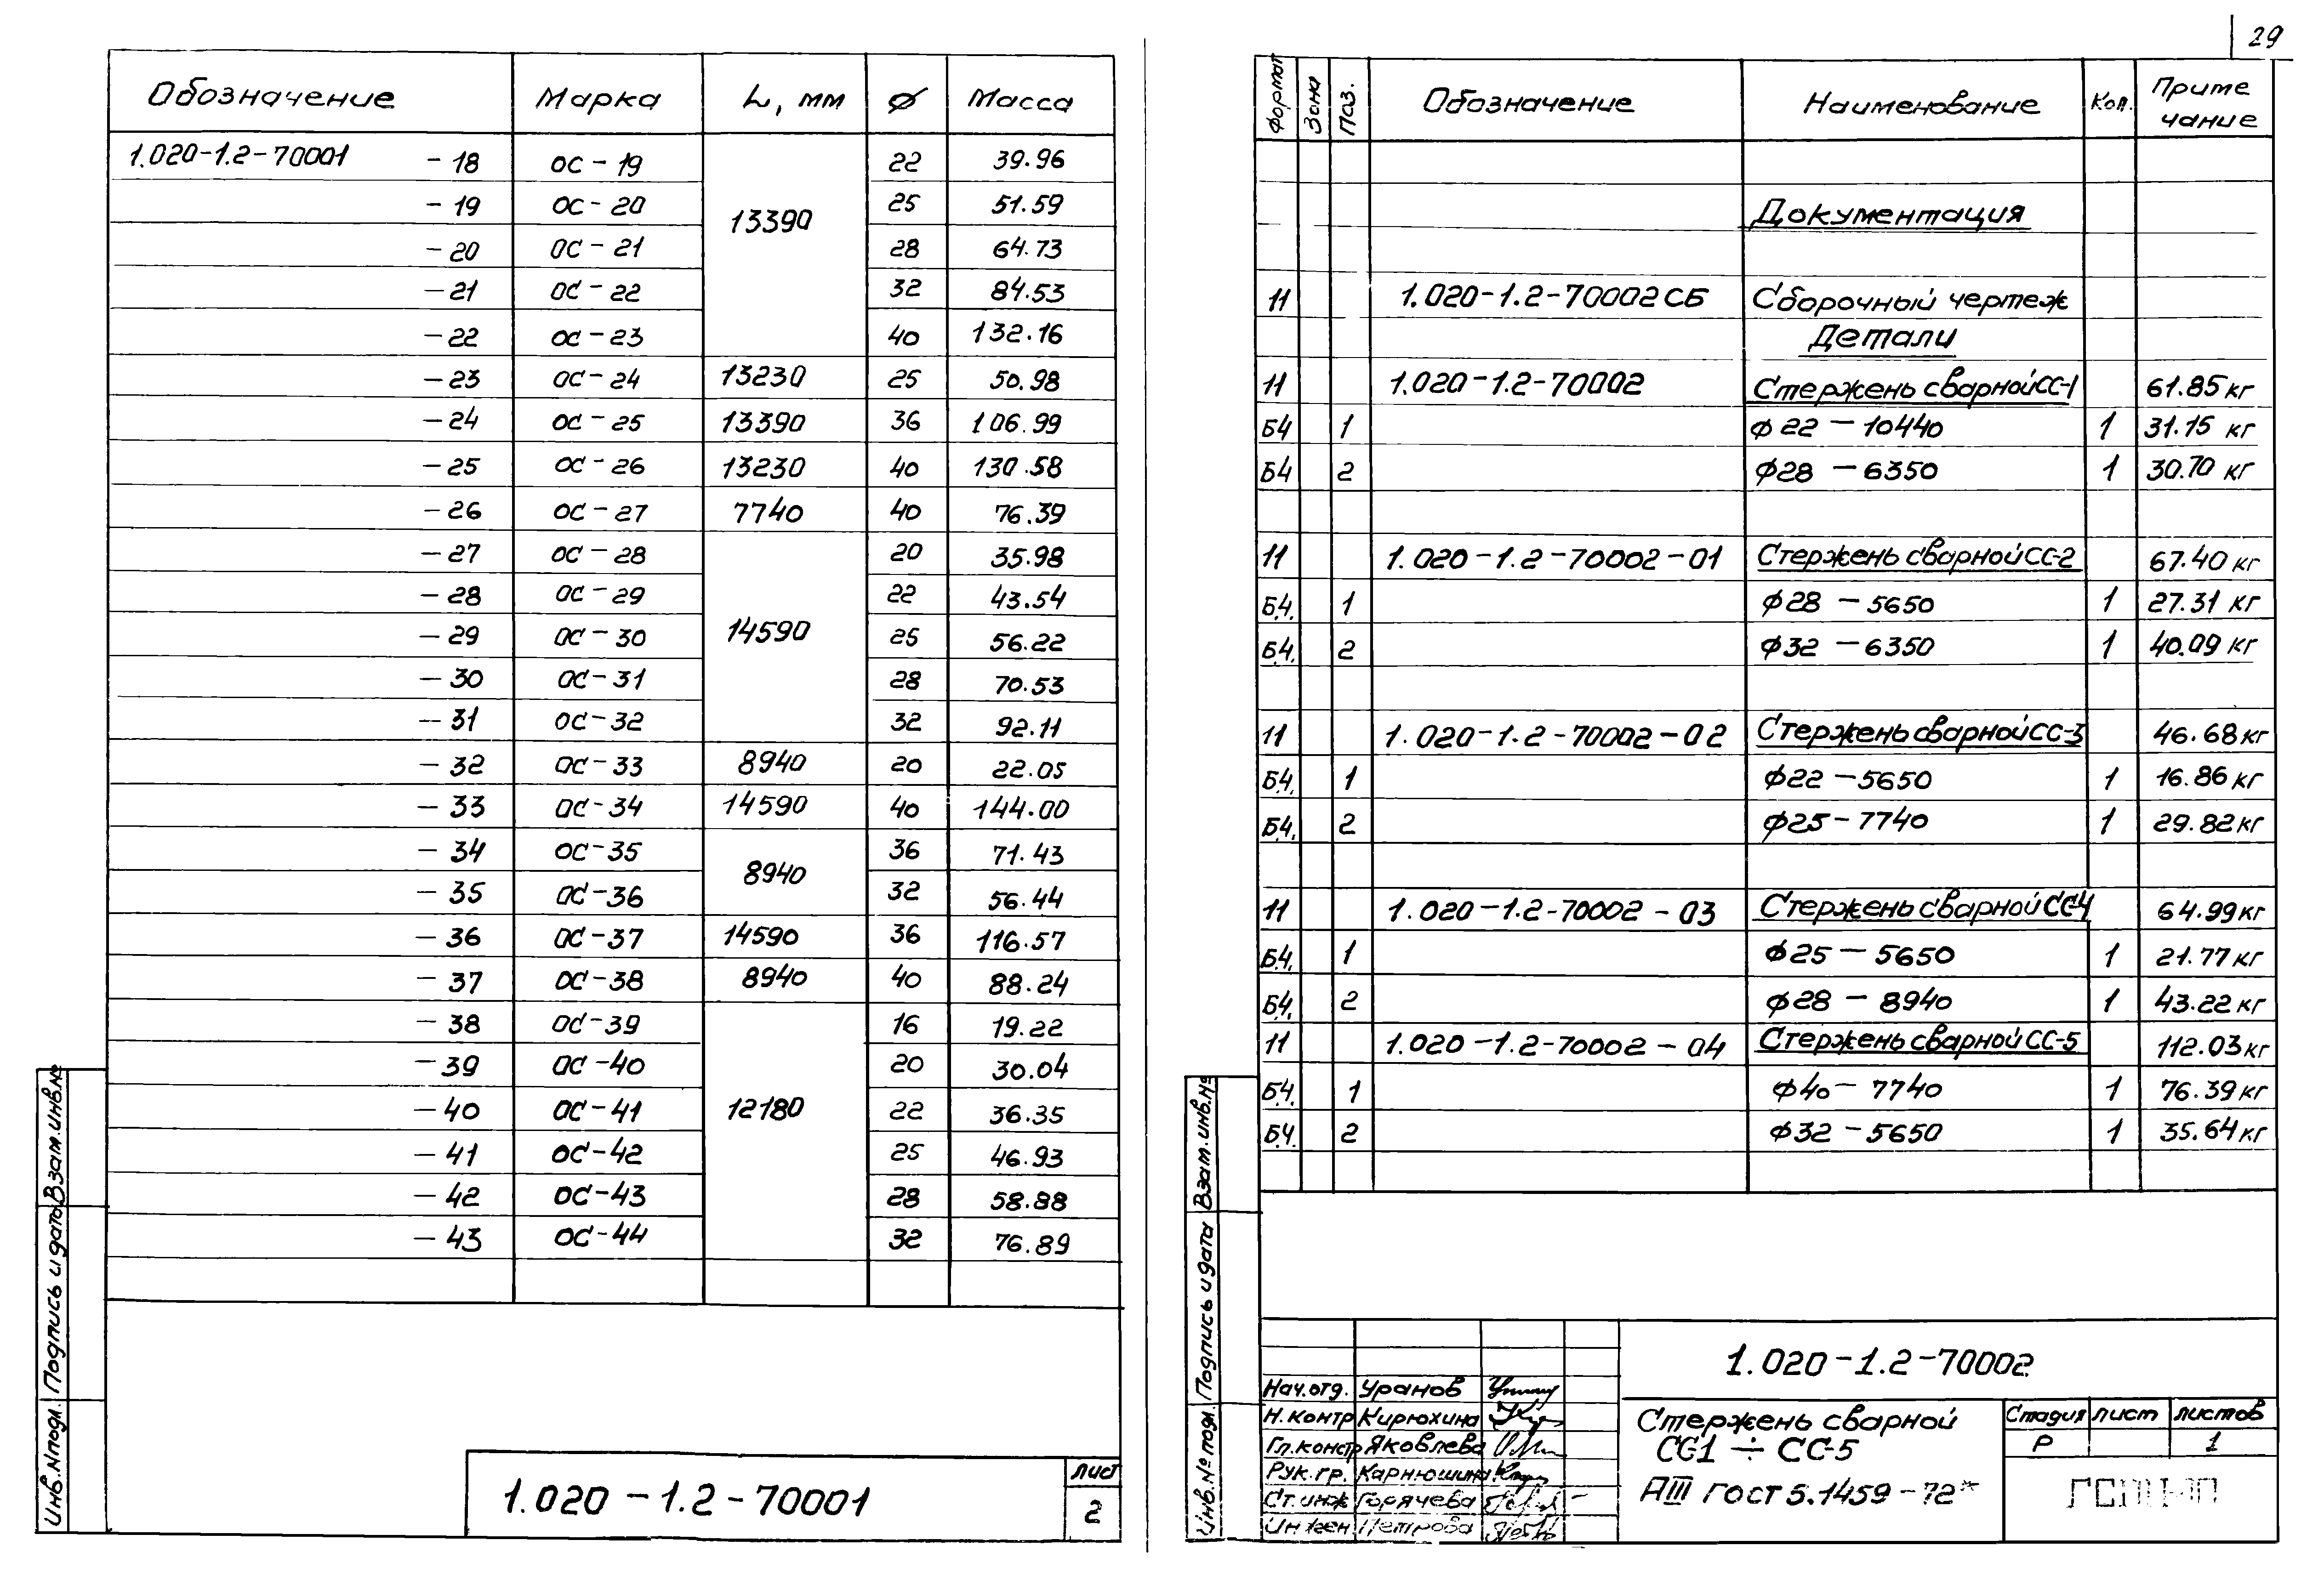 Обозначение Марка L, мм ⌀ Масса
1.020-1.2-70001 -18 ОС-19 22 39.96
-19 ОС-20 25 51.59
13390
-20 ОС-21 28 64.73
-21 ОС-22 32 84.53
-22 ОС-23 40 132.16
-23 ОС-24 13230 25 50.98
-24 ОС-25 13390 36 106.99
-25 ОС-26 13230 40 130.58
-26 ОС-27 7740 40 76.39
-27 ОС-28 20 35.98
-28 ОС-29 22 43.54
-29 ОС-30 14590 25 56.22
-30 ОС-31 28 70.53
-31 ОС-32 32 92.11
-32 ОС-33 8940 20 22.05
-33 ОС-34 14590 40 144.00
-34 ОС-35 36 71.43
8940
-35 ОС-36 32 56.44
-36 ОС-37 14590 36 116.57
-37 ОС-38 8940 40 88.24
-38 ОС-39 16 19.22
-39 ОС-40 20 30.04
-40 ОС-41 12180 22 36.35
-41 ОС-42 25 46.93
-42 ОС-43 28 58.88
-43 ОС-44 32 76.89
Инв.№подл. Подпись и дата Взам.инв.№
1.020-1.2-70001
лист
2
29
Формат Зона Поз. Обозначение Наименование Кол. Приме
чание
Документация
11 1.020-1.2-70002СБ Сборочный чертеж
Детали
11 1.020-1.2-70002 Стержень сварной СС-1 61.85 кг
Б4 1 ф22-10440 1 31.15 кг
Б4 2 ф28-6350 1 30.70 кг
11 1.020-1.2-70002-01 Стержень сварной СС-2 67.40 кг
Б4. 1 ф28-5650 1 27.31 кг
Б4. 2 ф32-6350 1 40.09 кг
11 1.020-1.2-70002-02 Стержень сварной СС-3 46.68 кг
Б4. 1 ф22-5650 1 16.86 кг
Б4. 2 ф25-7740 1 29.82 кг
11 1.020-1.2-70002-03 Стержень сварной СС-4 64.99 кг
Б4. 1 ф25-5650 1 21.77 кг
Б4. 2 ф28-8940 1 43.22 кг
11 1.020-1.2-70002-04 Стержень сварной СС-5 112.03 кг
Б4. 1 ф40-7740 1 76.39 кг
Б.4. 2 ф32-5650 1 35.64 кг
Инв.№ подл. Подпись и дата Взам.инв.№
1.020-1.2-70002
Нач.отд. Уранов
Н.контр Кирюхина
Гл.констр Яковлева
Рук.гр. Карнюшина
Ст.инж Горячева
Инжен Петрова
Стержень сварной
СС-1 ÷ СС-5
АIII ГОСТ 5.1459-72*
Стадия лист листов
Р 1